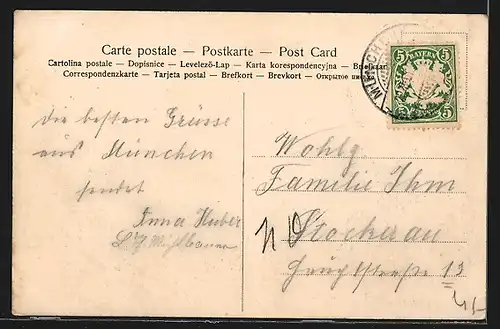 Carte postale – Postkarte – Post Card
Cartolina postale – Dopisnice – Levelező-Lap – Karta korespondencyjna –
Correspondenzkarte – Tarjeta postal – Brefkort – Brevkort – Открытое
BAYERN
5 5
5 5
Die besten Grüsse
aus München
sendet
Anna Huber
Wohlg
Familie Ihm
Stockerau
N Ö
13